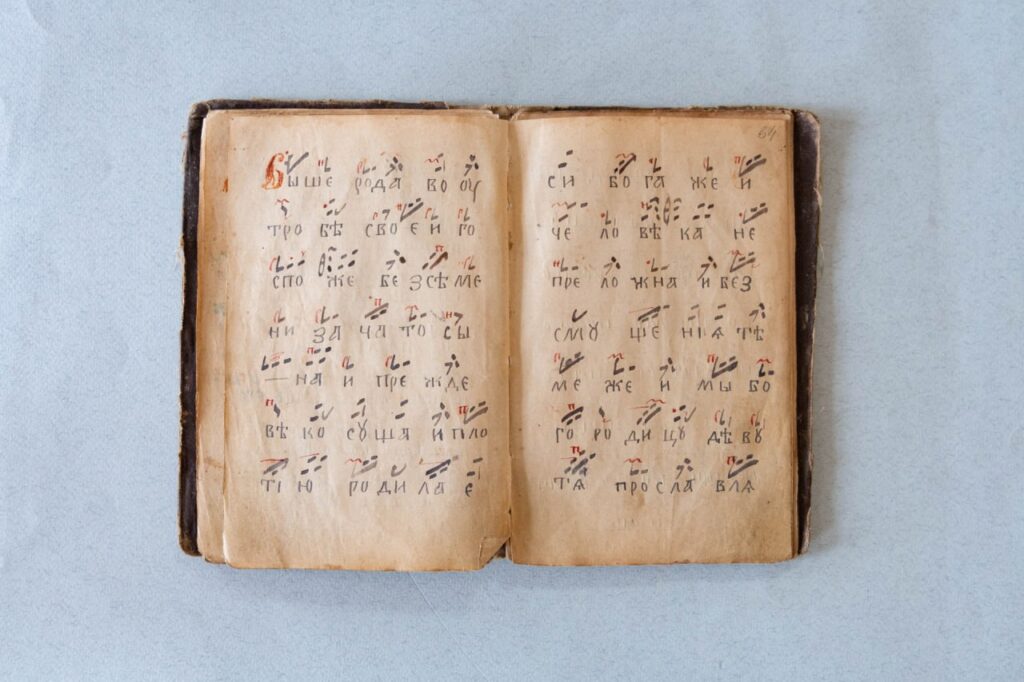 64
Выше рода во оу
тро бѣ своеи го
спо же бе зсѣ ме
ни за ча то сы
—на и пре жде
вѣ ко сꙋ ща и пло
тї ю ро ди ла е
си бо га же и
че ло вѣ ка не
пре ло жна и без
смꙋ ще нї ѧ тѣ
ме же и мы бо
го ро ди цꙋ дѣ вꙋ
тѧ про сла влѧ